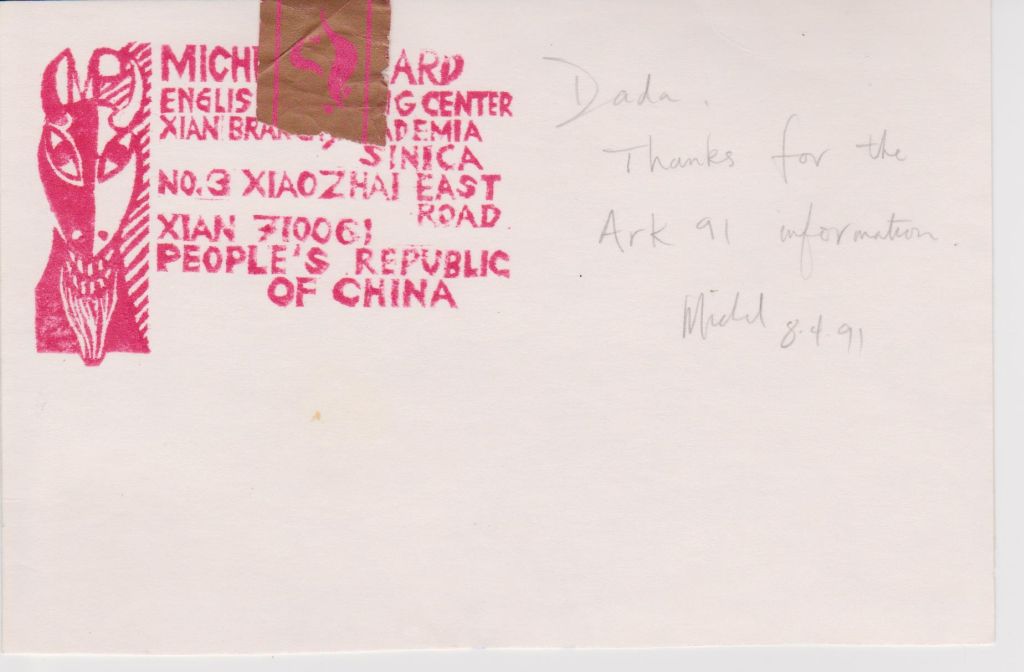 MICH ARD
ENGLIS G CENTER
XIAN BRANCH, ADEMIA
SINICA
NO.3 XIAOZHAI EAST
ROAD
XIAN 710061
PEOPLE'S REPUBLIC
OF CHINA
Dada.
Thanks for the
Ark 91 information.
Michel 8.4.91